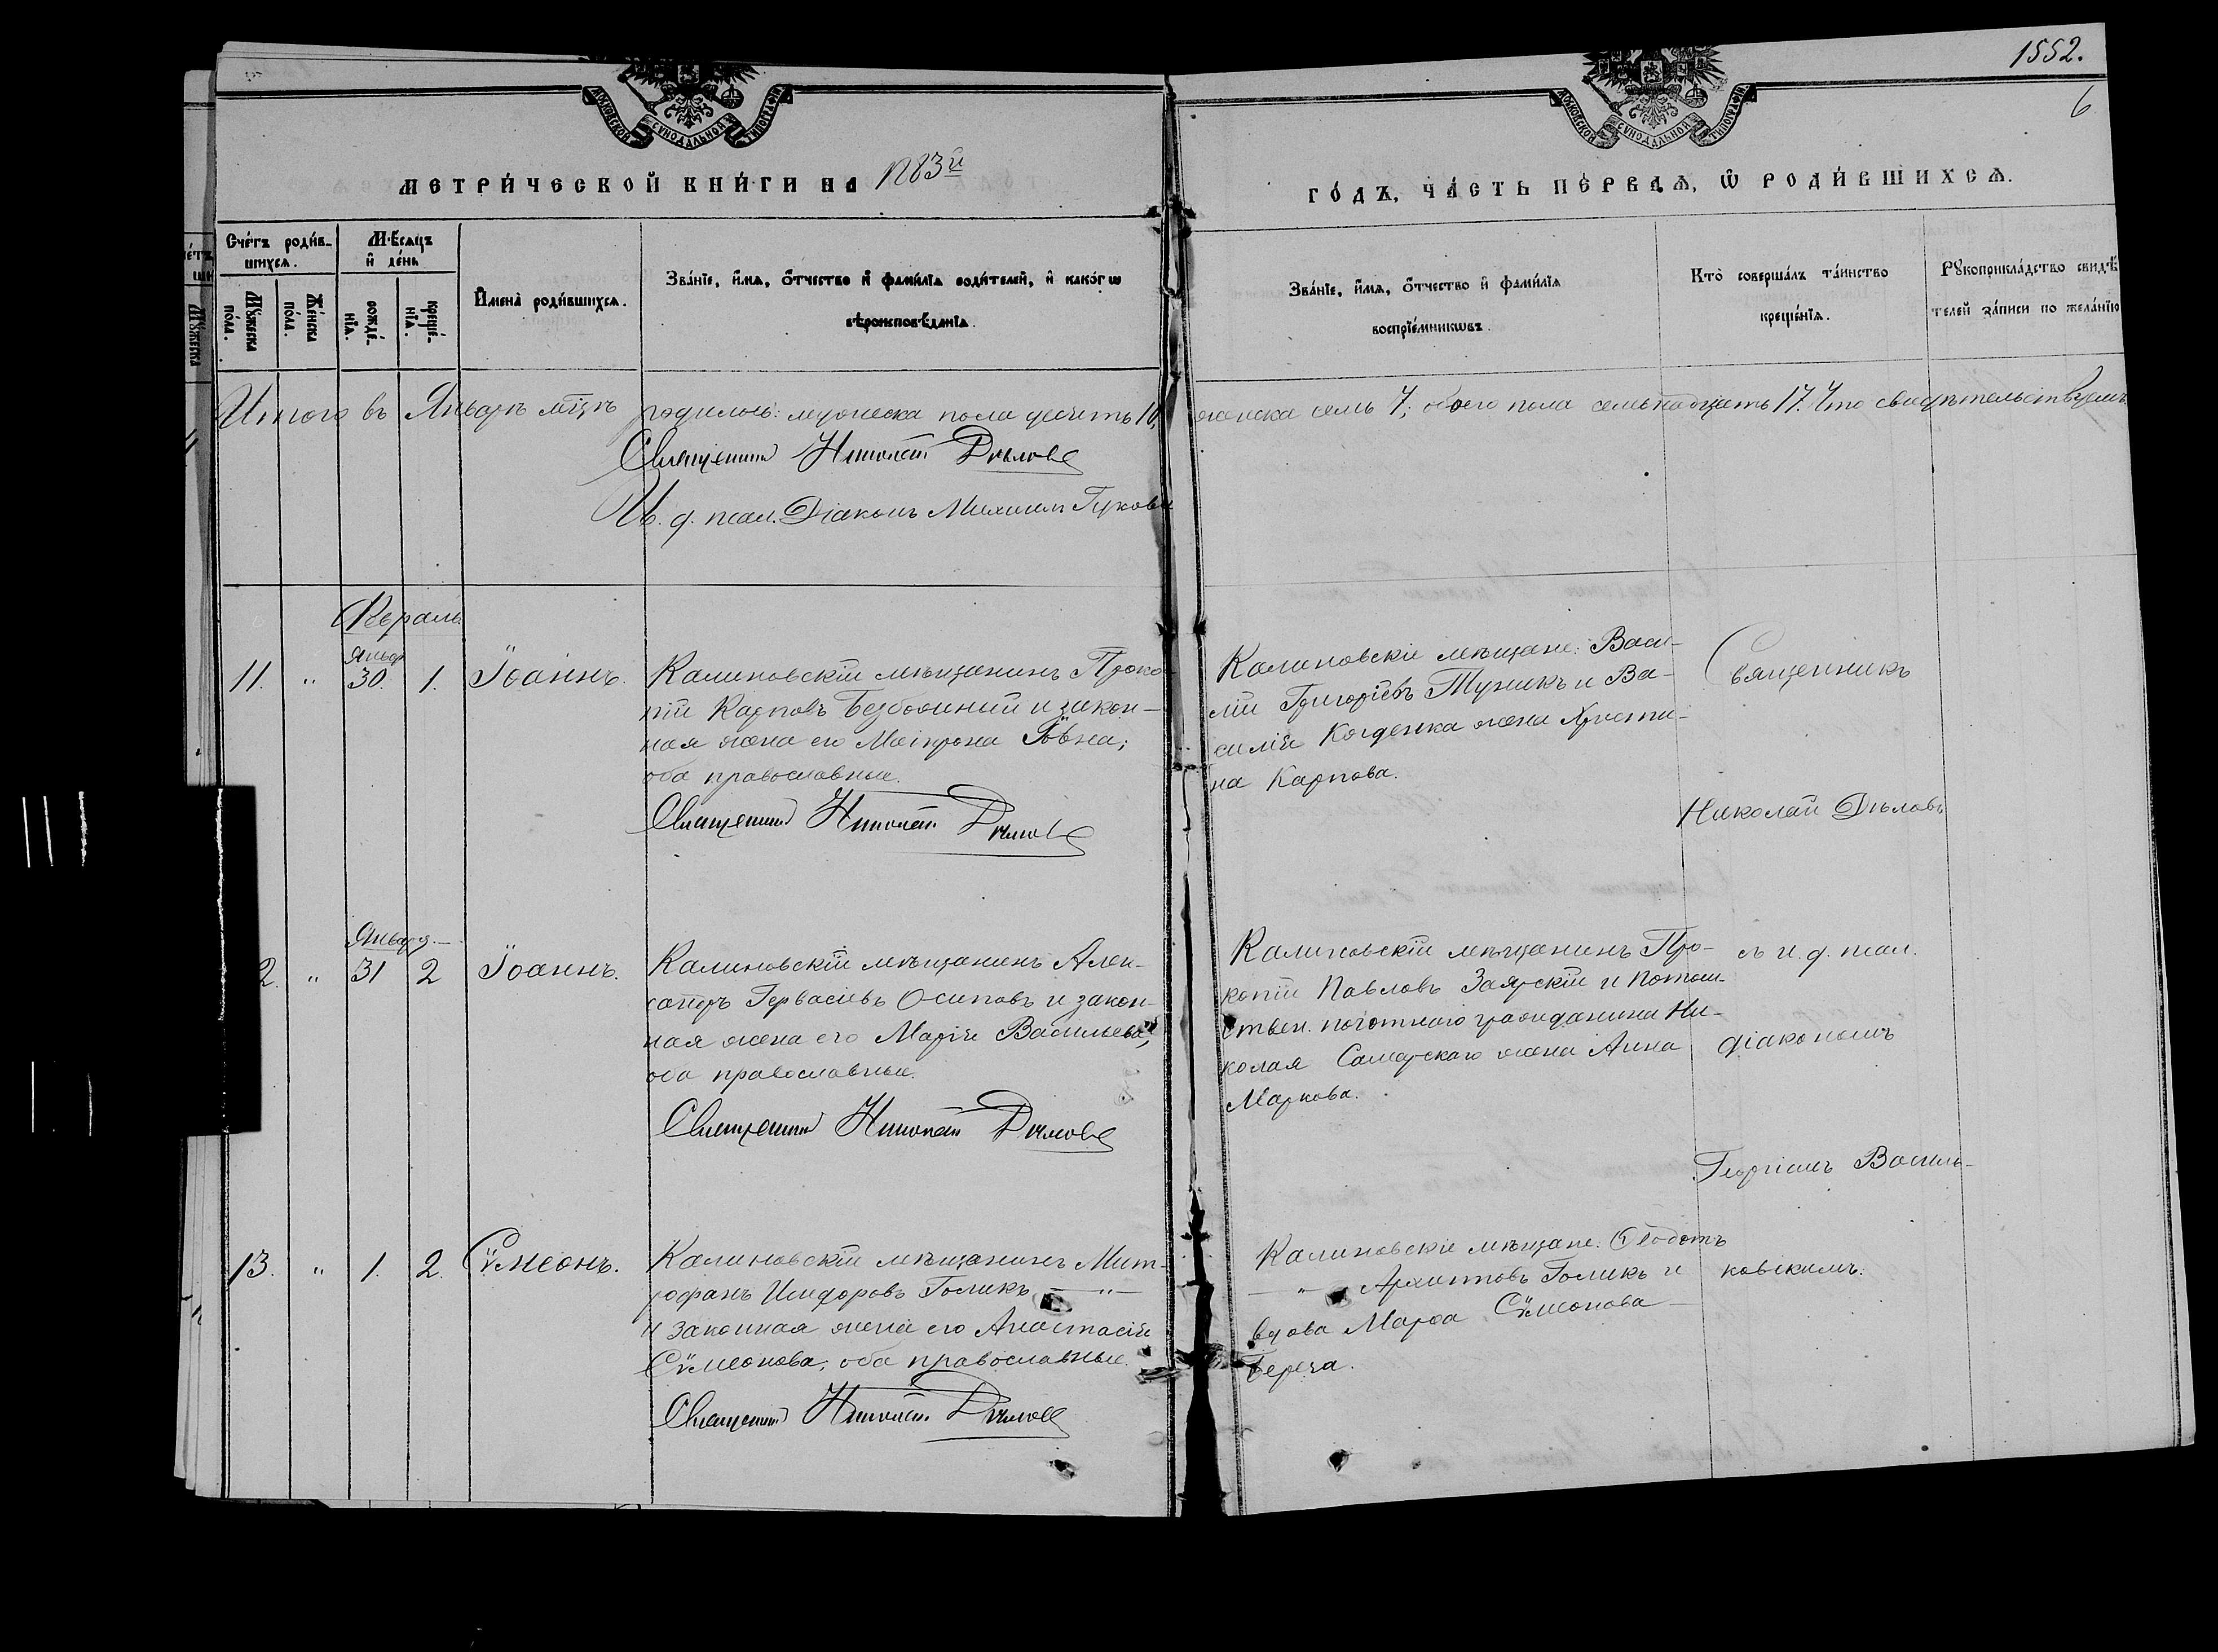 1552.
6
МОСКОВСКОЙ СѴНОДАЛЬНОЙ ТИПОГРАФІИ
МОСКОВСКОЙ СѴНОДАЛЬНОЙ ТИПОГРАФІИ
МЕТРИ́ЧЕСКОЙ КНИ́ГИ НА 1883й
ГО́ДЪ, ЧА́СТЬ ПЕ́РВАѦ, Ѿ РОДИ́ВШИХСѦ.
Сче́тъ роди́в-
шихсѧ.
Мѣ́сѧцъ
и҆ де́нь
Мꙋ́жеска
по́ла.
Же́нска
по́ла.
рожде́-
нїѧ.
креще́-
нїѧ.
И҆мена̀ роди́вшихсѧ.
Зва́нїе, и҆́мѧ, ѻ҆́тчество и҆ фами́лїѧ роди́телей, и҆ како́гѡ
вѣроисповѣ́данїѧ.
Зва́нїе, и҆́мѧ, ѻ҆́тчество и҆ фами́лїѧ
воспрїе́мникѡвъ.
Кто̀ соверша́лъ та́инство
креще́нїѧ.
Рꙋкоприкла́дство свидѣ́-
телей за́писи по жела́нїю
Итого въ Январѣ мцѣ родилось: мужеска пола десять 10, женска семь 7; обоего пола семьнадцать 17. Что свидѣтельствуемъ.
Священник Николай Дѣловъ
И. д. псал. Діаконъ Михаил
Февраль
Январ
11. " 30. 1. Іоаннъ.
Калиновскій мѣщанинъ Проко-
пій Карповъ Безбожный и закон-
ная жена его
оба православные.
Священник Николай Дѣловъ
Калиновскіе мѣщане: Васи-
лій Григоріевъ Тупикъ и Ва-
силія жена Христи-
на Карпова.
Священникъ
Николай Дѣловъ
Января.
2. " 31 2 Іоаннъ.
Калиновскій мѣщанинъ Алек-
сандръ Гервасіевъ Осиповъ и закон-
ная жена его Марія Васильева;
оба православные.
Священник Николай Дѣловъ
Калиновскій мѣщанинъ Про-
копій Павловъ Заярскій и потом-
ствен. почотнаго гражданина Ни-
колая Самарскаго жена Анна
Маркова.
съ и. д. псал.
діакономъ
Георгіемъ Василь-
13. " 1. 2. Сѵмеонъ.
Калиновскій мѣщанинъ Мит-
рофанъ Исидоровъ Голикъ — " —
и законная жена его Анастасія
Сѵмеонова; оба православные.
Священник Николай Дѣловъ
Калиновскіе мѣщане: Ѳеодотъ
— " — Архиповъ Голикъ и
вдова Марѳа Сѵмеонова —
Береза.
ковскимъ.